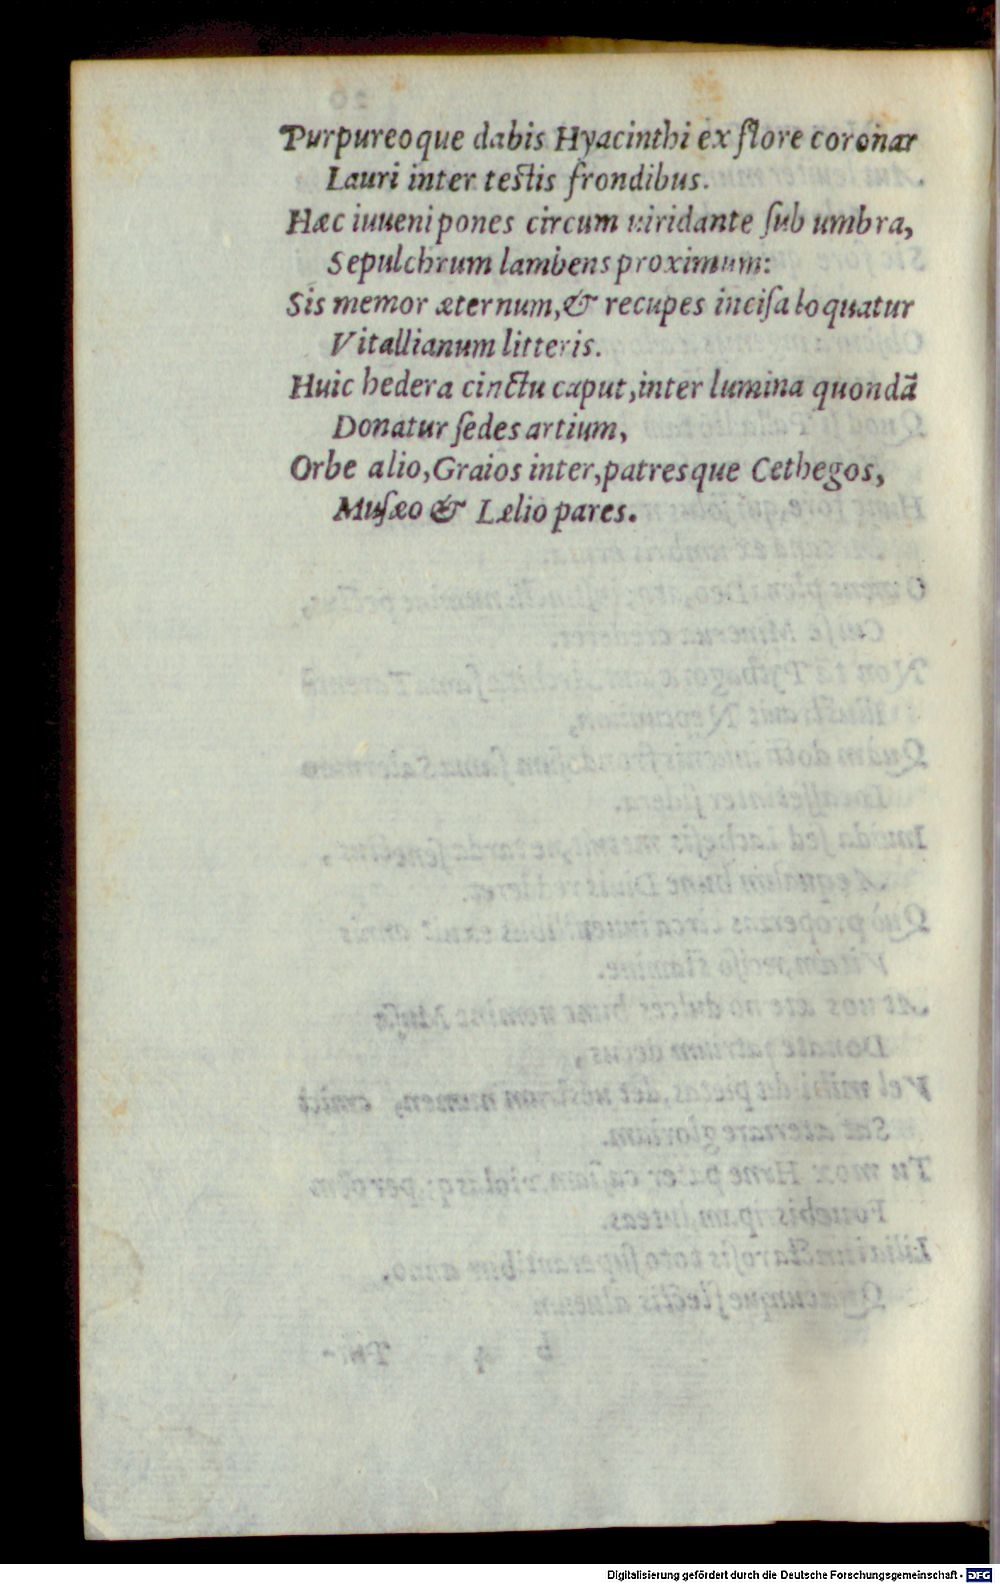 Purpureoque dabis Hyacinthi ex flore coronar
Lauri inter testis frondibus.
Hæc iuueni pones circum uiridante ſub umbra,
Sepulchrum lambens proximum:
Sis memor æternum, & recupes inciſa loquatur
Vitallianum litteris.
Huic hedera cinctu caput, inter lumina quondã
Donatur ſedes artium,
Orbe alio, Graios inter, patresque Cethegos,
Muſæo & Lælio pares.
Digitalisierung gefördert durch die Deutsche Forschungsgemeinschaft - DFG